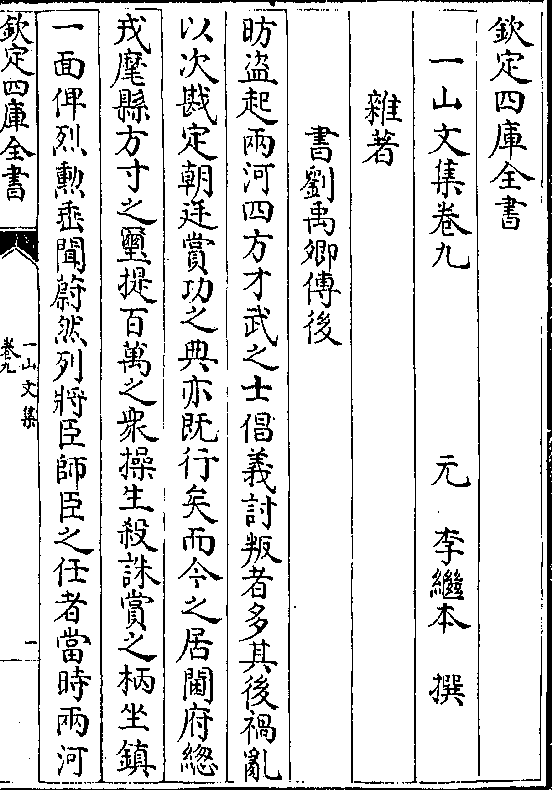 欽定四庫全書
一山文集卷九　元　李繼本　撰
雜著
書劉禹卿傳後
昉盜起兩河四方才武之士倡義討叛者多其後禍亂
以次戡定朝廷賞功之典亦既行矣而今之居閫府總
戎麾縣方寸之璽提百萬之衆操生殺誅賞之柄坐鎮
一面俾烈勲垂聞蔚然列將臣師臣之任者當時兩河
欽定四庫全書
一山文集
卷九
一